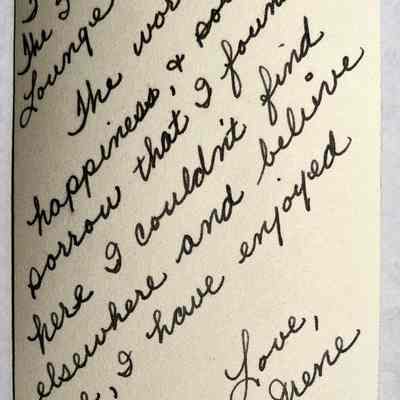 The
Lounge
The
happiness, &
sorrow that I found
here I couldn't find
elsewhere and believe
, I have enjoyed
Love,
Irene